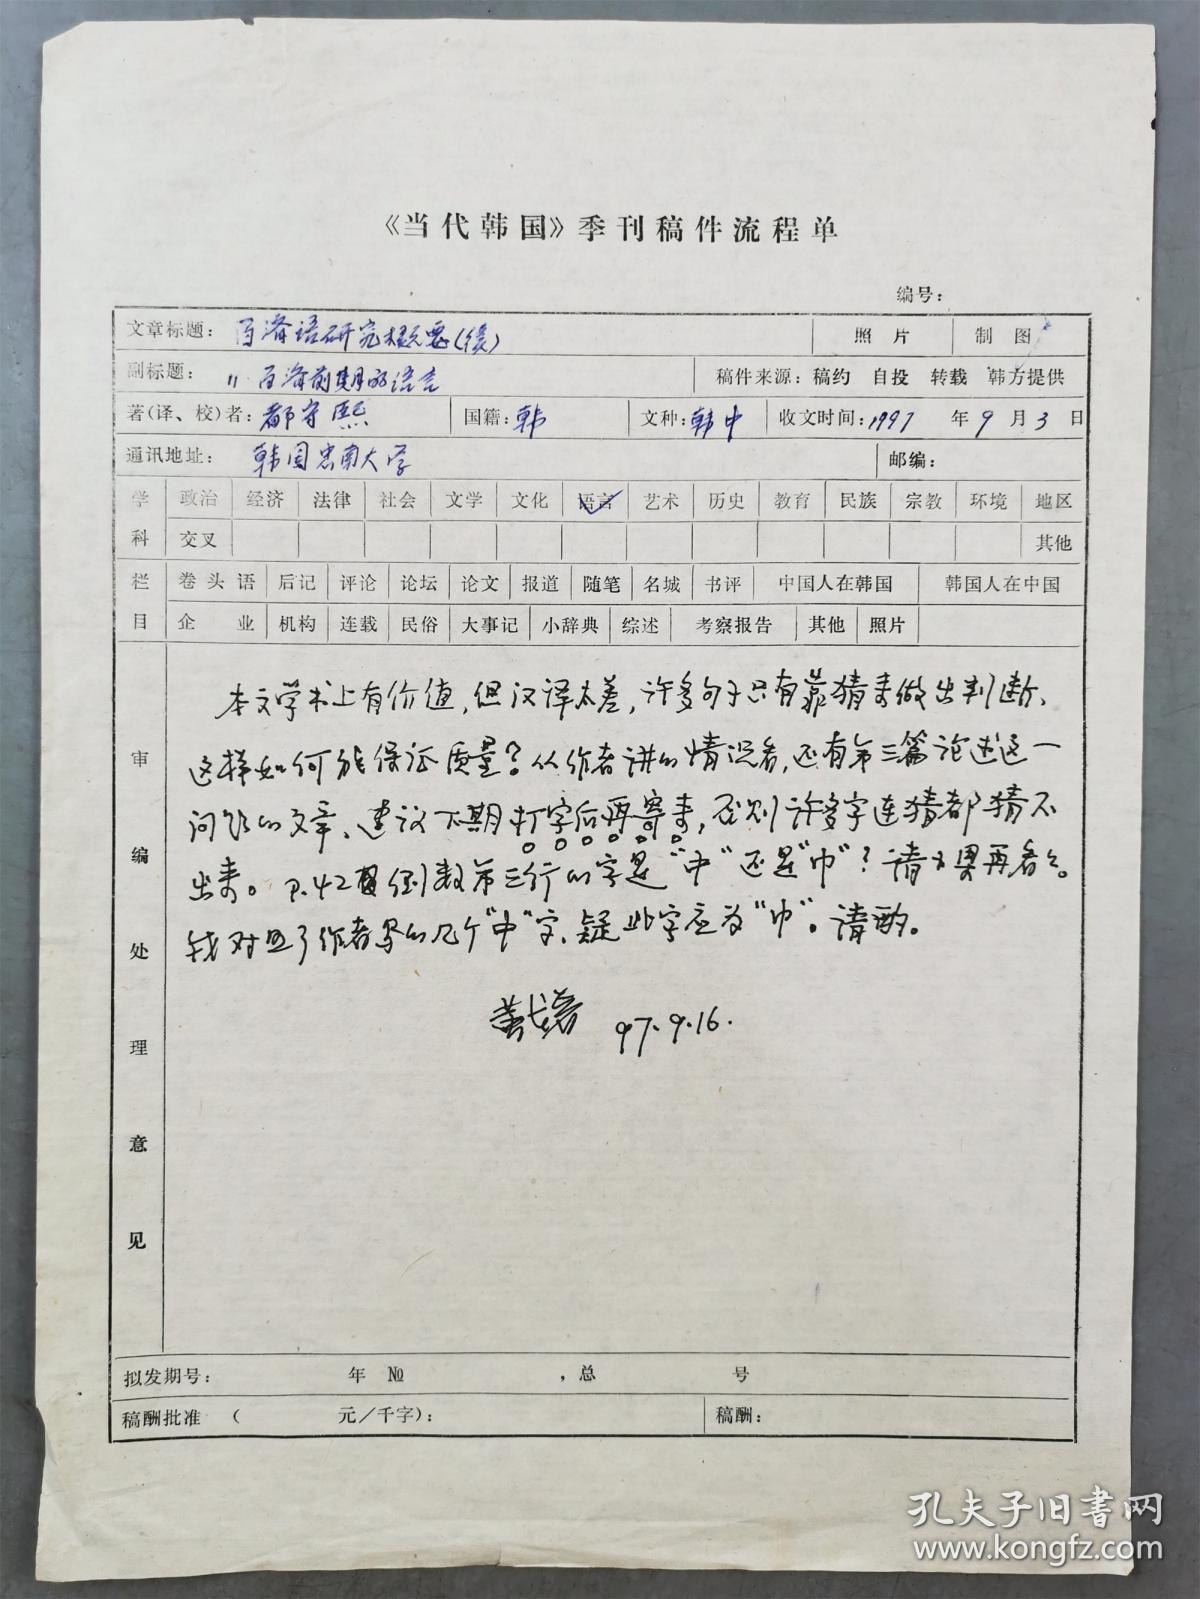 《当代韩国》季刊稿件流程单
编号：
文章标题： 百济语研究概要(续) 照片 制图
副标题： 百济前期的语言 稿件来源：稿约 自投 转载 韩方提供
著(译、校)者： 都守熙 国籍：韩 文种：韩中 收文时间：1997 年 9 月 3 日
通讯地址： 韩国忠南大学 邮编：
学 政治 经济 法律 社会 文学 文化 语言 艺术 历史 教育 民族 宗教 环境 地区
科 交叉 其他
栏 卷头语 后记 评论 论坛 论文 报道 随笔 名城 书评 中国人在韩国 韩国人在中国
目 企业 机构 连载 民俗 大事记 小辞典 综述 考察报告 其他 照片
审编处理意见
本文学术上有价值，但汉译太差，许多句子只有靠猜来做出判断、
这样如何能保证质量？从作者讲的情况看，还有第三篇论述这一
问题的文章、建议下期打字后再寄来，否则许多字连猜都猜不
出来。P.42 倒数第三行的字是“中”还是“巾”？请 再看看。
我对照了作者写的几个“中”字、疑此字应为“巾”。请酌。
97.9.16.
拟发期号： 年 № ，总 号
稿酬批准 （ 元／千字）： 稿酬：
孔夫子旧书网
www.kongfz.com